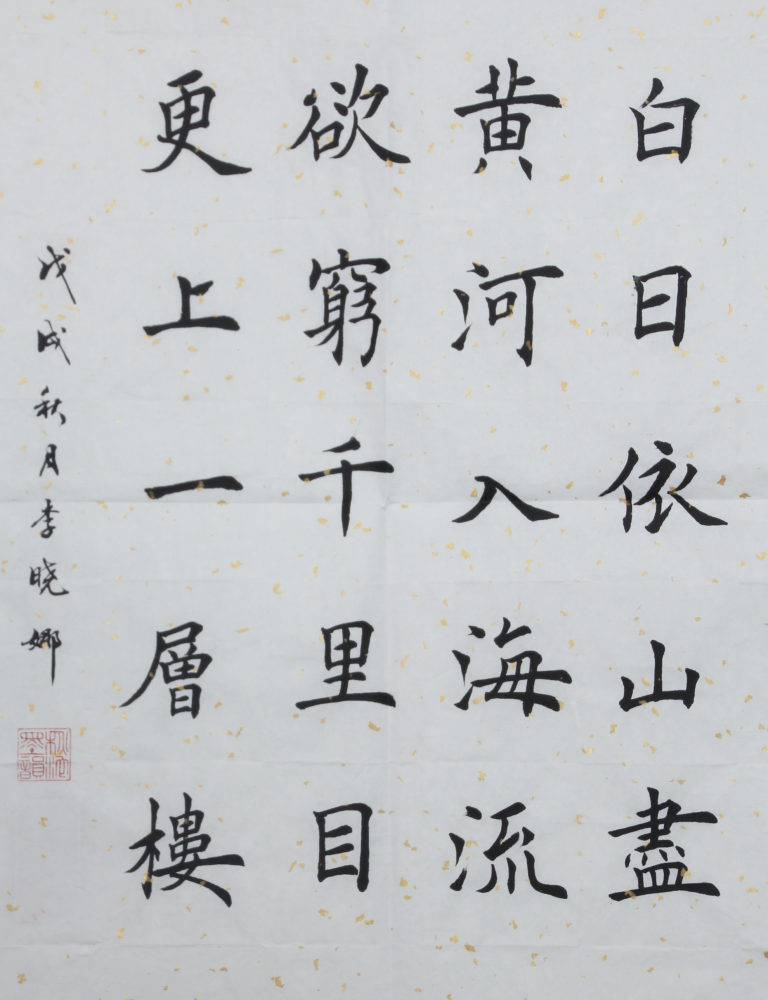 白日依山盡
黄河入海流
欲窮千里目
更上一層樓
戊戌秋月李晓娜